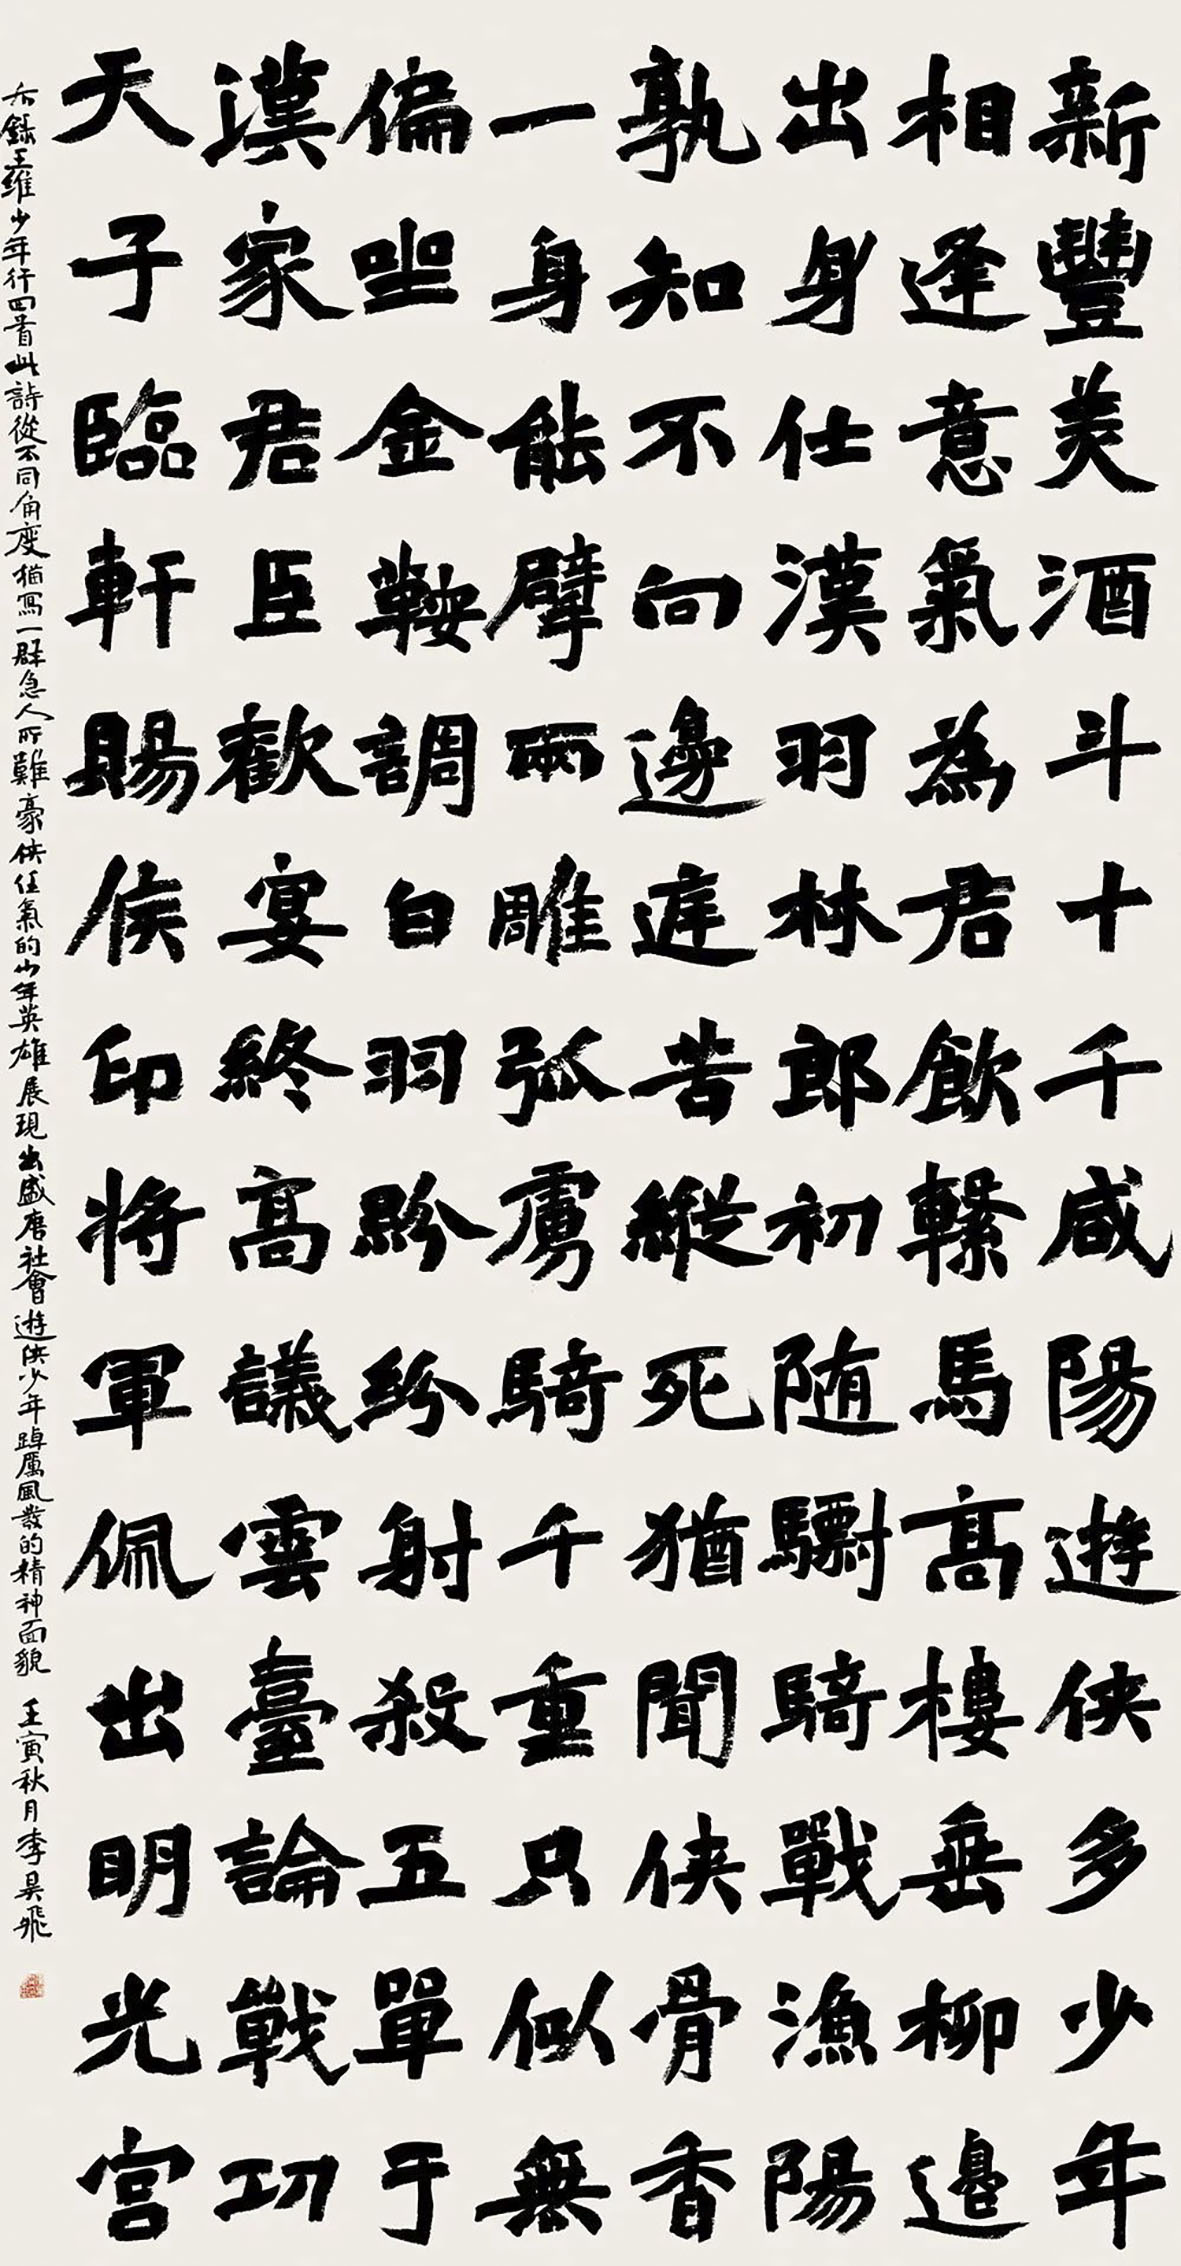 新豐美酒斗十千咸陽遊侠多少年
相逢意氣為君飲繫馬高樓垂柳邊
出身仕漢羽林郎初随驃騎戰漁陽
孰知不向邊庭苦縱死猶聞侠骨香
一身能擘兩雕弧虜騎千重只似無
偏坐金鞍調白羽黺紛射殺五單于
漢家君臣歡宴終高議雲臺論戰功
天子臨軒賜侯印将軍佩出明光宮
右錄王維少年行四首此詩從不同角度描寫一群急人所難豪侠任氣的少年英雄展現出盛唐社會遊侠少年踔厲風發的精神面貌 壬寅秋月李昊飛